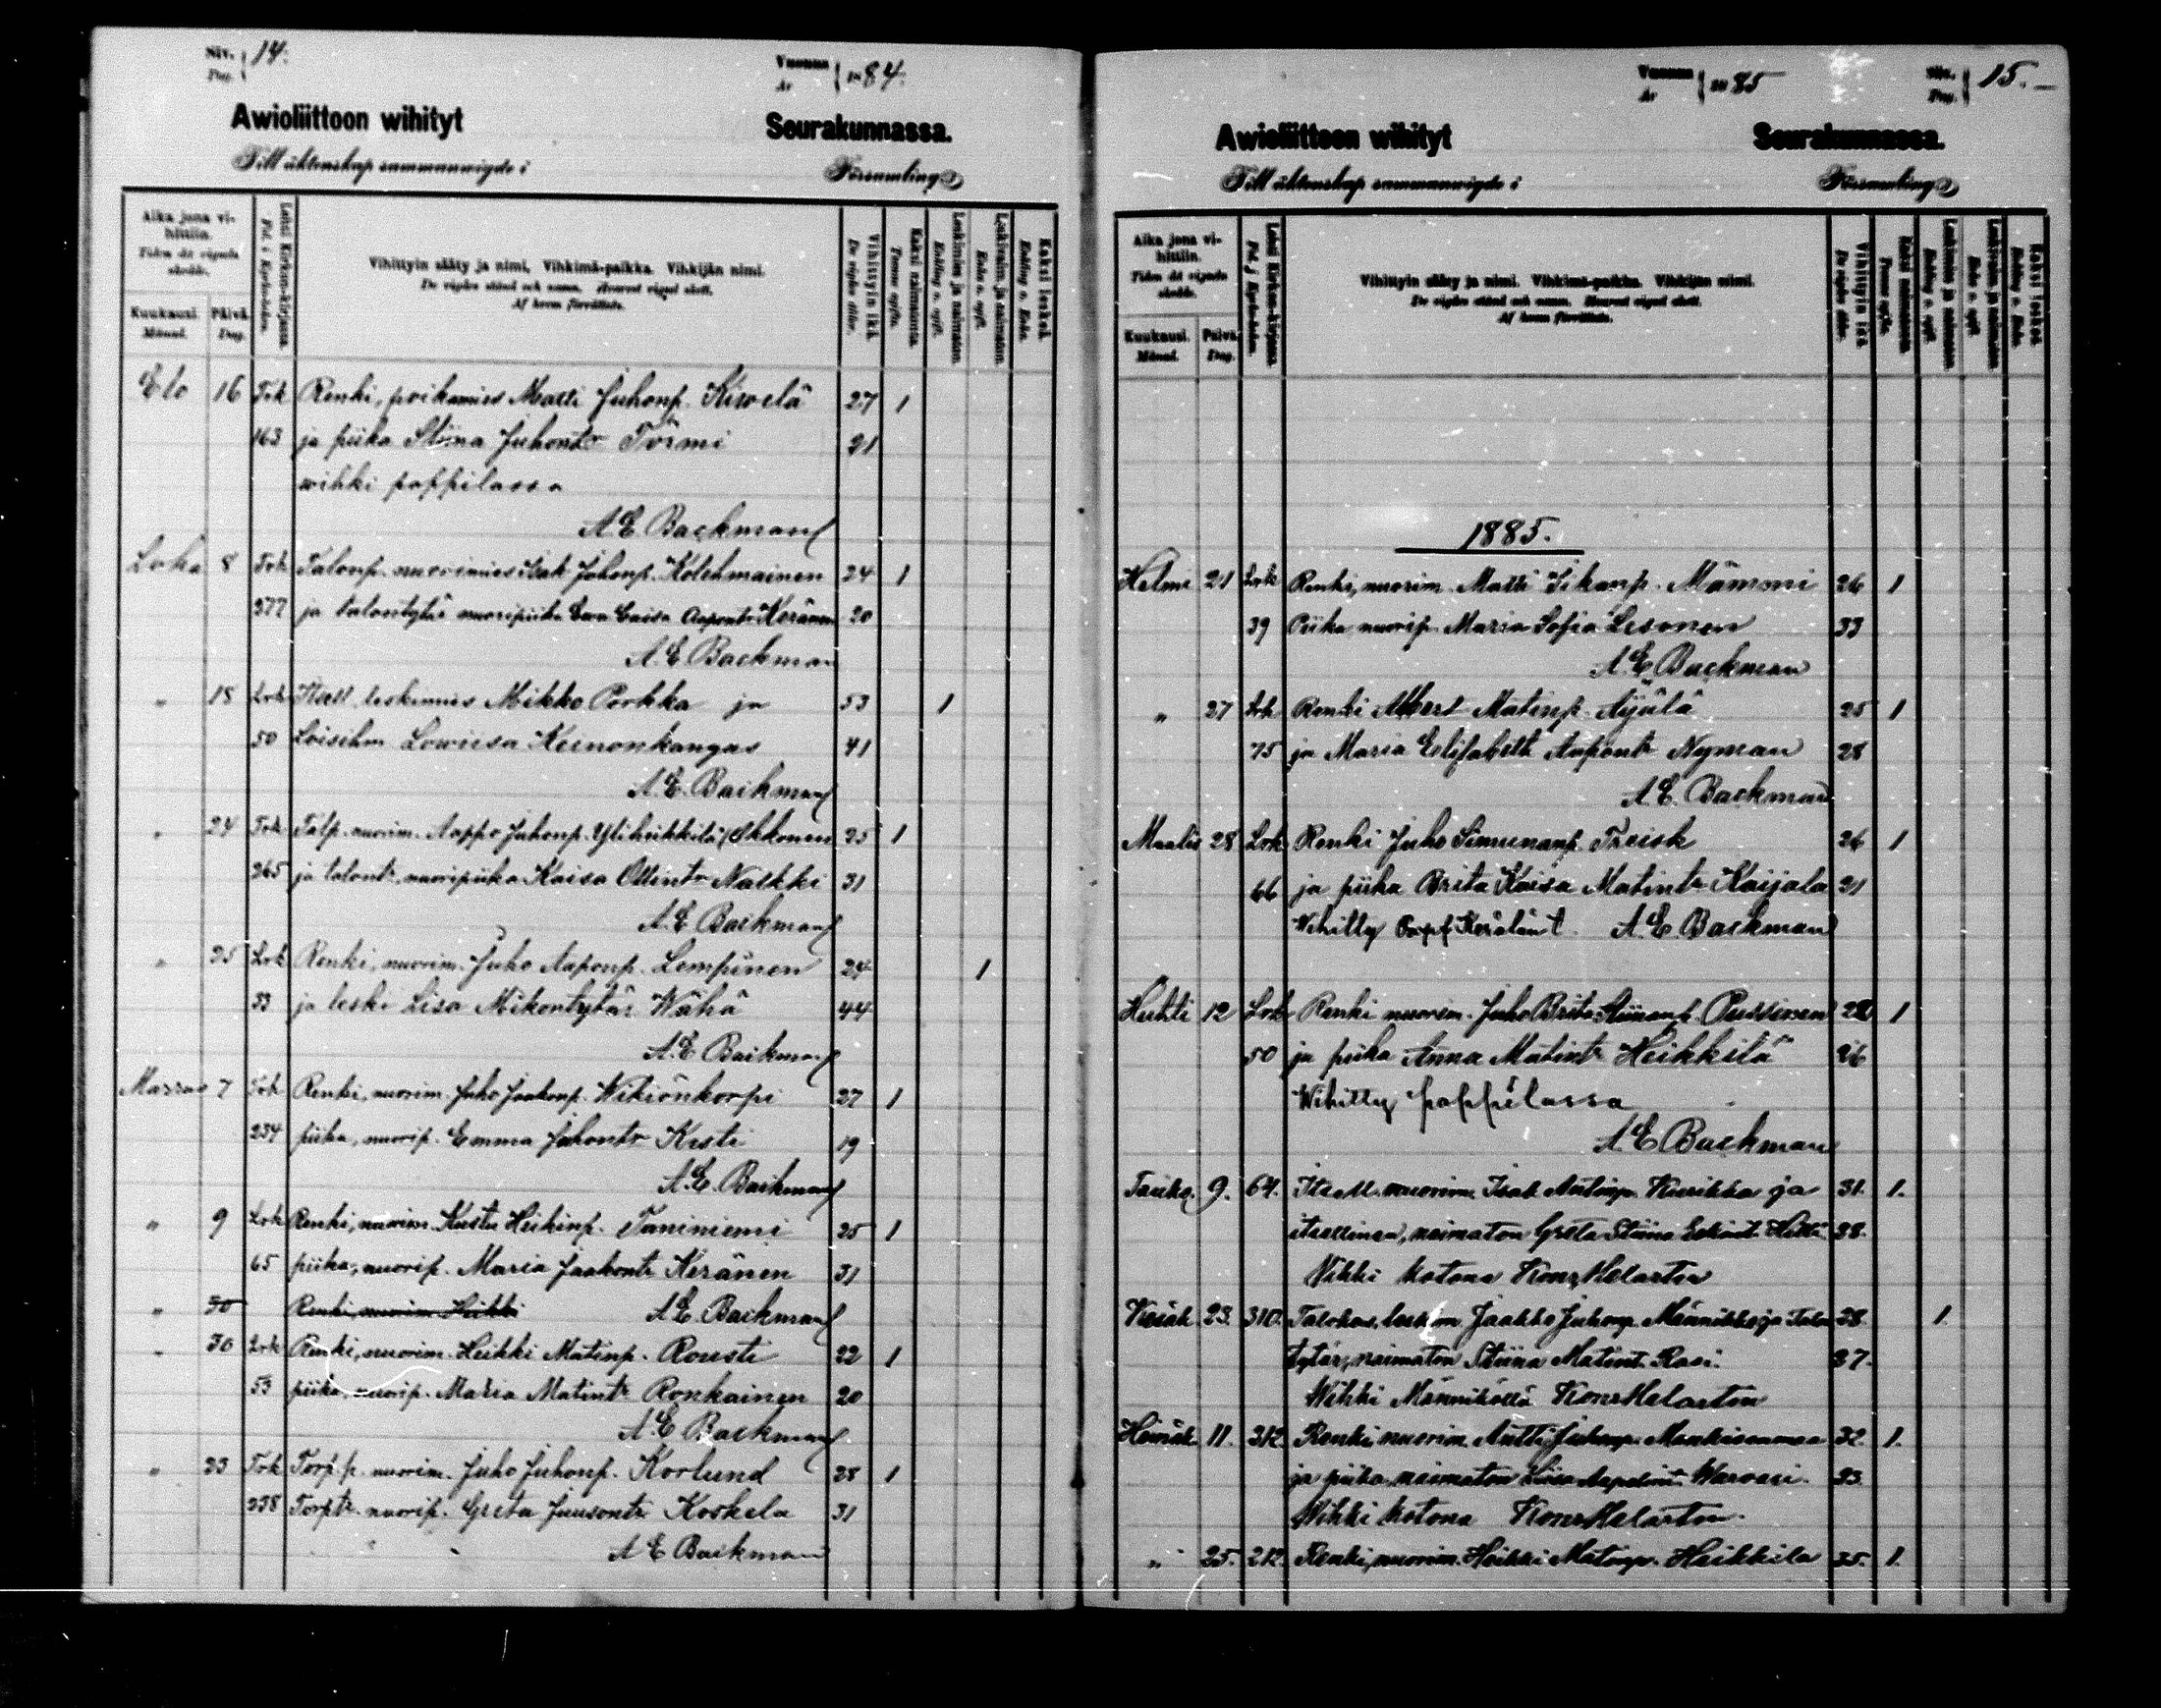 Siv. 14.
Pag.
Vuonna 1884.
År
Awioliittoon wihityt Seurakunnassa.
Till äktenskap sammanwigde i Församling
Aika jona vihittiin.
Tiden då vigseln skedde.
Kuukausi. Päivä.
Månad. Dag.
Lehti Kirkon-kirjassa.
Fol. i Kyrko-boken.
Vihittyin sääty ja nimi. Vihkimä-paikka. Vihkijän nimi.
De vigdes stånd och namn. Hvarest vigsel skett.
Af hvem förrättats.
Vihittyin ikä.
De vigdes ålder.
Kaksi naimatonta.
Tvenne ogifta.
Leskimies ja naimaton.
Enkling o. ogift.
Leskivaim. ja naimaton.
Enka o. ogift.
Kaksi leskeä.
Enkling o. Enka.
Elo 16 Trk Renki, poikamies Matti Juhonp. Kiwelä 27 1
163 ja piika Stiina Juhontr Törmi 21
wihki pappilassa
A. E. Backman
Loka 8 Trk Talonp. nuorimies Isak Juhonp. Kolehmainen 24 1
377 ja talontytär nuoripiika Ewa Caisa Aapontr Keränen 20
A. E. Backman
" 18 Lrk Itsell. leskimies Mikko Porkka ja 53 1
50 Loisihm Lowiisa Keinonkangas 41
A. E. Backman
" 24 Trk Talp. nuorim. Aappo Juhonp. Yliheikkilä (Ukkonen 25 1
265 ja talontr. nuoripiika Kaisa Ollintr Nalkki 31
A. E. Backman
" 25 Lrk Renki, nuorim. Juho Aaponp. Lempinen 24 1
33 ja leski Lisa Mikontytär Wähä 44
A. E. Backman
Marras 7 Trk Renki, nuorim. Juho Jaakonp. Wikiönkorpi 27 1
234 piika, nuorip. Emma Juhontr Kesti 19
A. E. Backman
" 9 Lrk Renki, nuorim. Kustu Heikinp. Taniniemi 25 1
65 piika, nuorip. Maria Jaakontr Keränen 31
" 30 Renki, nuorim. Heikki A. E. Backman
" 30 Lrk Renki, nuorim. Heikki Matinp. Rousti 22 1
53 piika, nuorip. Maria Matintr Ronkainen 20
A. E. Backman
" 23 Trk Torp. p. nuorim. Juho Juhonp. Korlund 28 1
238 Torptr. nuorip. Greta Juusontr Koskela 31
A. E. Backman
Vuonna 1885 Siv. 15.
År Pag.
Awioliittoon wihityt Seurakunnassa.
Till äktenskap sammanwigde i Församling
Aika jona vihittiin.
Tiden då vigseln skedde.
Kuukausi. Päivä.
Månad. Dag.
Lehti Kirkon-kirjassa.
Fol. i Kyrko-boken.
Vihittyin sääty ja nimi. Vihkimä-paikka. Vihkijän nimi.
De vigdes stånd och namn. Hvarest vigsel skett.
Af hvem förrättats.
Vihittyin ikä.
De vigdes ålder.
Kaksi naimatonta.
Tvenne ogifta.
Leskimies ja naimaton.
Enkling o. ogift.
Leskivaim. ja naimaton.
Enka o. ogift.
Kaksi leskeä.
Enkling o. Enka.
1885.
Helmi 21 Lrk Renki, nuorim. Matti Iikanp. Mämmi 26 1
39 Piika nuorip. Maria Sofia Lesonen 33
A. E. Backman
" 27 Lrk Renki Albert Matinp. Äijälä 25 1
75 ja Maria Elisabeth Aapontr Nyman 28
A. E. Backman
Maalis 28 Lrk Renki Juho Simunanp. Frisk 26 1
66 ja piika Brita Kaisa Matintr Kaijala 21
Wihitty A. E. Backman
Huhti 12 Lrk Renki nuorim. Juho Brita Stiinanp. Pussinen 28 1
50 ja piika Anna Matintr Heikkilä 26
Wihitty pappilassa
A. E. Backman
Touko. 9. 64. Itsell. nuorim. Isak Antinp. Kurikka ja 31. 1.
itsellinen, naimaton Greta Stiina 38.
Wihki kotona
Kesäk 23. 310. leskim. Jaakko Juhonp. Männikkö ja 28. 1.
tytär, naimaton Stiina Matint. Rasi. 37.
Wihki Männiköllä
Heinäk. 11. 312. Renki nuorim. Antti Juhonp. 32. 1.
ja piika, naimaton Liisa 23.
Wihki kotona
" 25. 212. Renki, nuorim. Heikki Matinp. Heikkilä 35. 1.